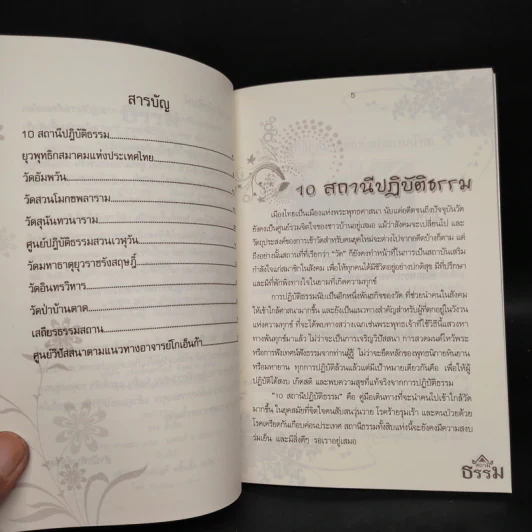 สารบัญ
10 สถานีปฏิบัติธรรม
ยุวพุทธิกสมาคมแห่งประเทศไทย
วัดอัมพวัน
วัดสวนโมกขพลาราม
วัดสุนันทวนาราม
ศูนย์ปฏิบัติธรรมสวนเวฬุวัน
วัดมหาธาตุยุวราชรังสฤษฎิ์
วัดอินทรวิหาร
วัดป่าบ้านตาด
เสถียรธรรมสถาน
ศูนย์วิปัสสนาตามแนวทางอาจารย์โกเอ็นก้า
5
10 สถานีปฏิบัติธรรม
เมืองไทยเป็นเมืองแห่งพระพุทธศาสนา นับแต่อดีตจนถึงปัจจุบันวัด
ยังคงเป็นศูนย์รวมจิตใจของชาวบ้านอยู่เสมอ แม้ว่าสังคมจะเปลี่ยนไป และ
วัตถุประสงค์ของการเข้าวัดสำหรับคนยุคใหม่จะต่างไปจากอดีตบ้างก็ตาม แต่
ถึงอย่างนั้นสถานที่ที่เรียกว่า "วัด" ก็ยังคงทำหน้าที่ในการเป็นสถาบันเสริม
กำลังใจแก่สมาชิกในสังคม เพื่อให้ทุกคนได้มีชีวิตอยู่อย่างปกติสุข มีที่ปรึกษา
และมีที่พักพิงทางใจในยามที่เกิดความทุกข์
การปฏิบัติธรรมนับเป็นอีกหนึ่งพันธกิจของวัด ที่ช่วยนำคนในสังคม
ให้เข้าใกล้ศาสนามากขึ้น และยังเป็นแนวทางสำคัญสำหรับผู้ที่ตกอยู่ในวังวน
แห่งความทุกข์ ที่จะได้พบทางสว่างเฉกเช่นพระพุทธเจ้าที่ใช้วิธีนี้แสวงหา
ทางพ้นทุกข์มาแล้ว ไม่ว่าจะเป็นการเจริญวิปัสสนา การสวดมนต์ไหว้พระ
หรือการฟังเทศน์ฟังธรรมจากท่านผู้รู้ ไม่ว่าจะยึดหลักของพุทธนิกายหินยาน
หรือมหายาน ทุกการปฏิบัติล้วนแล้วแต่มีเป้าหมายเดียวกันคือ เพื่อให้ผู้
ปฏิบัติได้สงบ เกิดสติ และพบความสุขที่แท้จริงจากการปฏิบัติธรรม
"10 สถานีปฏิบัติธรรม" คือ คู่มือเดินทางที่จะนำคนไปเข้าใกล้วัด
มากขึ้น ในยุคสมัยที่จิตใจคนสับสนวุ่นวาย โรคร้ายรุมเร้า และคนป่วยด้วย
โรคเครียดกันเกือบค่อนประเทศ สถานีธรรมทั้งสิบแห่งนี้จะยังคงมีความสงบ
ร่มเย็น และมีสิ่งดีๆ รอเราอยู่เสมอ
สถานี
ธรรม